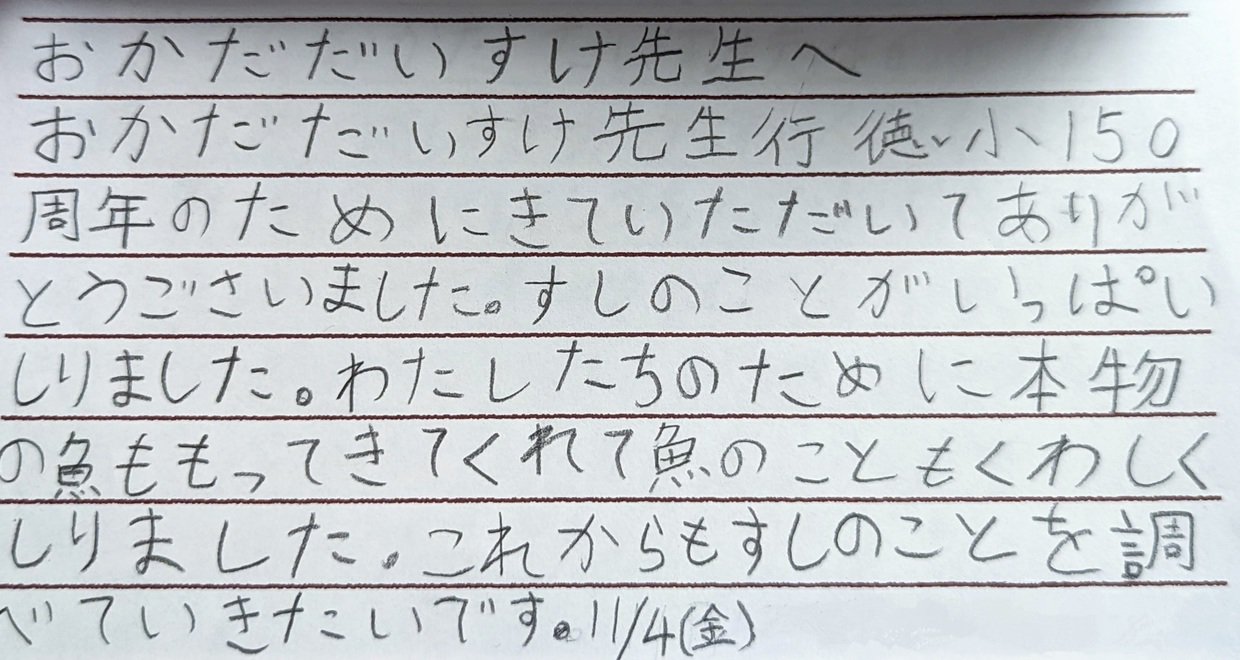 おかだだいすけ先生へ
おかだだいすけ先生行徳小150
周年のためにきていただいてありが
とうございました。すしのことがいっぱい
しりました。わたしたちのために本物
の魚ももってきてくれて魚のこともくわしく
しりました。これからもすしのことを調
べていきたいです。11/4(金)